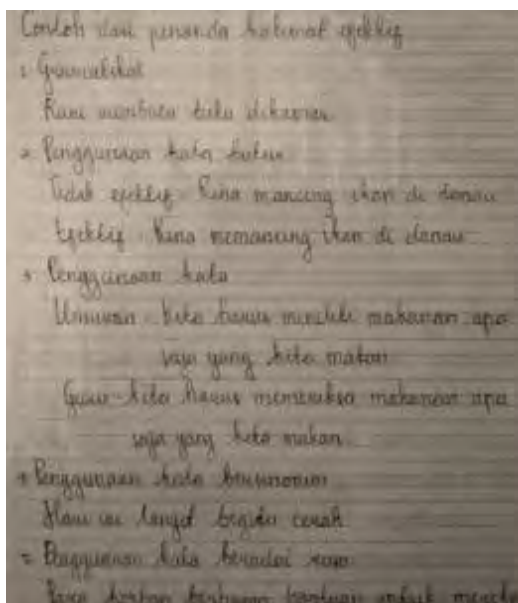 Contoh dari penanda kalimat efektif
1. Gramatikal
Rani membaca buku dikamar
2. Penggunaan kata baku
Tidak efektif : Rina mancing ikan di danau
Efektif : Rina memancing ikan di danau
3. Penggunaan kata
kita harus makanan apa
saja yang kita makan
kita harus memeriksa makanan apa
saja yang kita makan
4. Penggunaan kata bersinonim
Hari ini langit begitu cerah
5. Penggunaan kata bernilai rasa
korban bantuan untuk